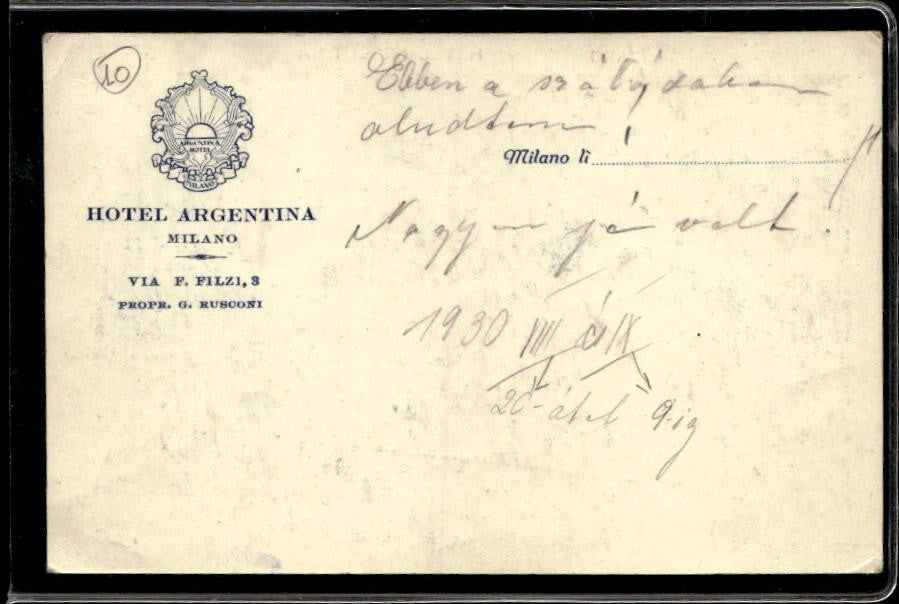 10
Ebben a szállodában
aludtam
ARGENTINA
HOTEL
MILANO
Milano lì
HOTEL ARGENTINA
MILANO
Nagyon jó volt.
VIA F. FILZI, 3
PROPR. G. RUSCONI
1930 VIII és IX
20-ától 9-ig